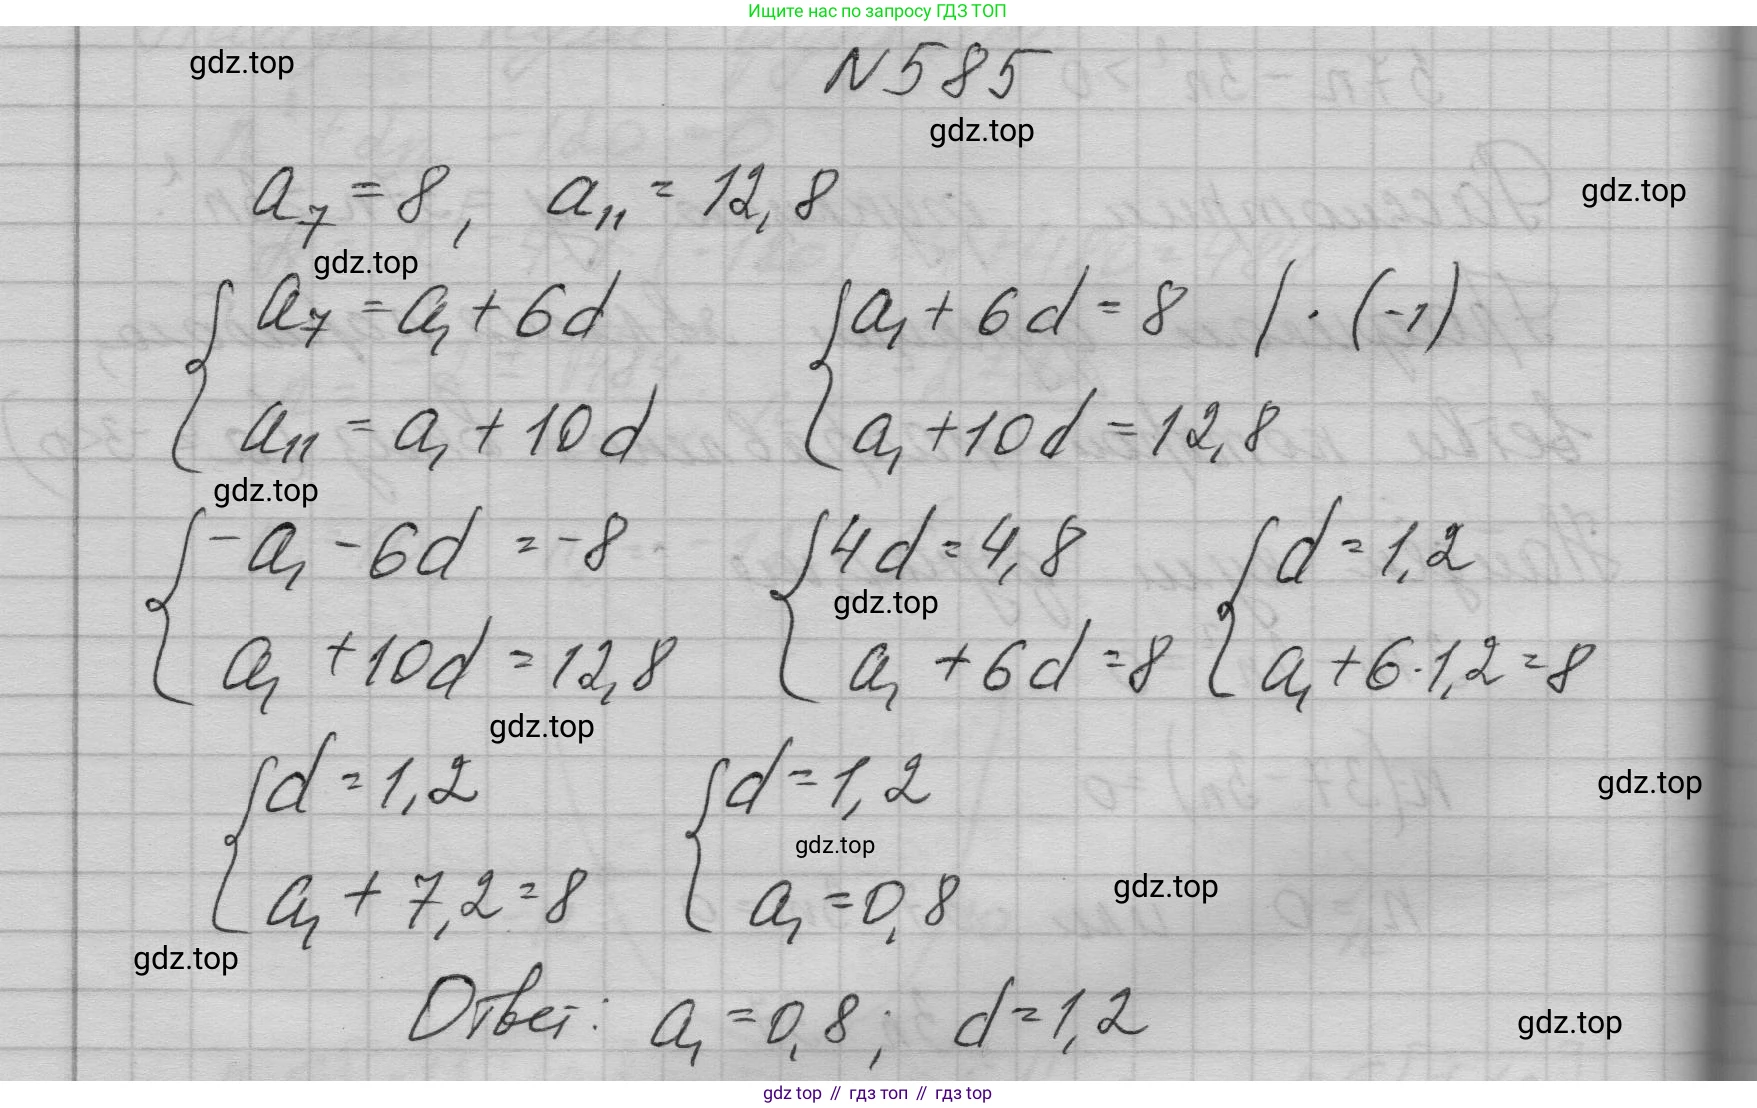 Ищите нас по запросу ГДЗ ТОП
gdz.top
N 585
gdz.top
a₇ = 8, a₁₁ = 12,8
gdz.top
gdz.top
{ a₇ = a₁ + 6d
a₁₁ = a₁ + 10d
{ a₁ + 6d = 8 | · (-1)
a₁ + 10d = 12,8
gdz.top
{ -a₁ - 6d = -8
a₁ + 10d = 12,8
{ 4d = 4,8
gdz.top
a₁ + 6d = 8
{ d = 1,2
a₁ + 6 · 1,2 = 8
gdz.top
{ d = 1,2
a₁ + 7,2 = 8
{ d = 1,2
gdz.top
a₁ = 0,8
gdz.top
gdz.top
gdz.top
Ответ: a₁ = 0,8; d = 1,2
gdz.top
gdz top // гдз топ // гдз top